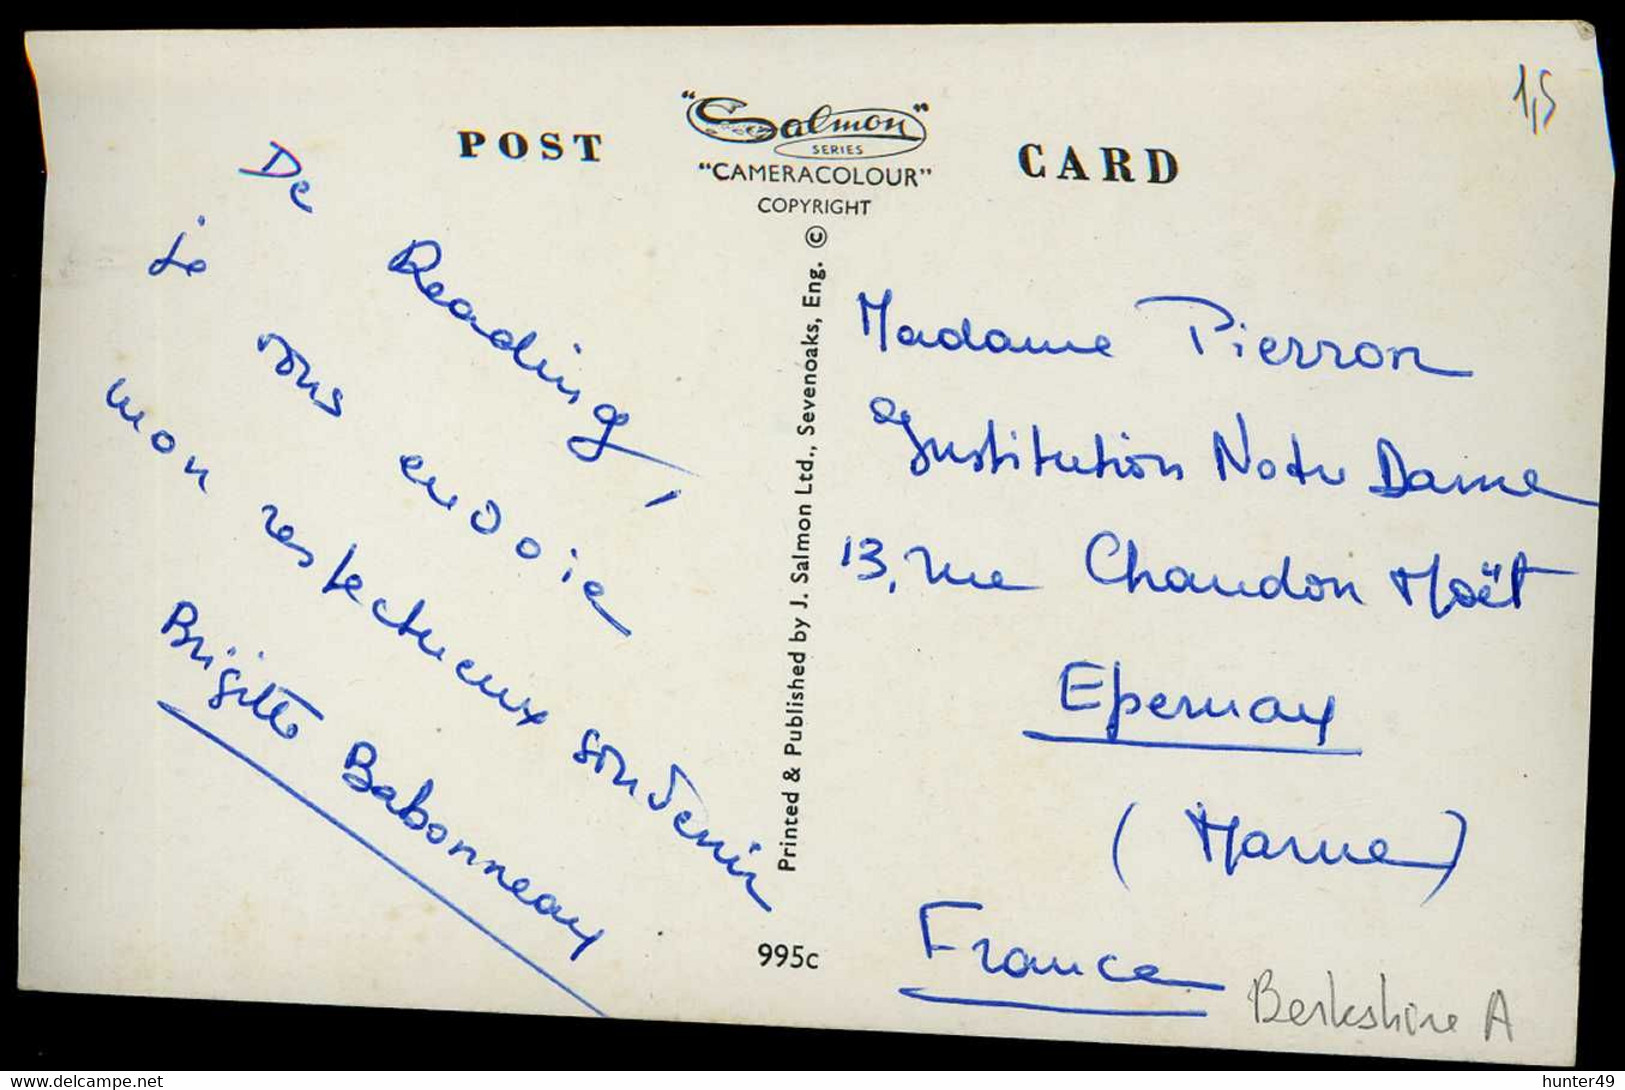 POST CARD
"Salmon"
SERIES
"CAMERACOLOUR"
COPYRIGHT
1,5
De Reading,
je vous envoie
mon respectueux souvenir
Brigitte Babonneau
Printed & Published by J. Salmon Ltd., Sevenoaks, Eng. ©
995c
Madame Pierron
Institution Notre Dame
13, rue Chandon Moët
Epernay
(Marne)
France
Berkshire A
delcampe.net
hunter49